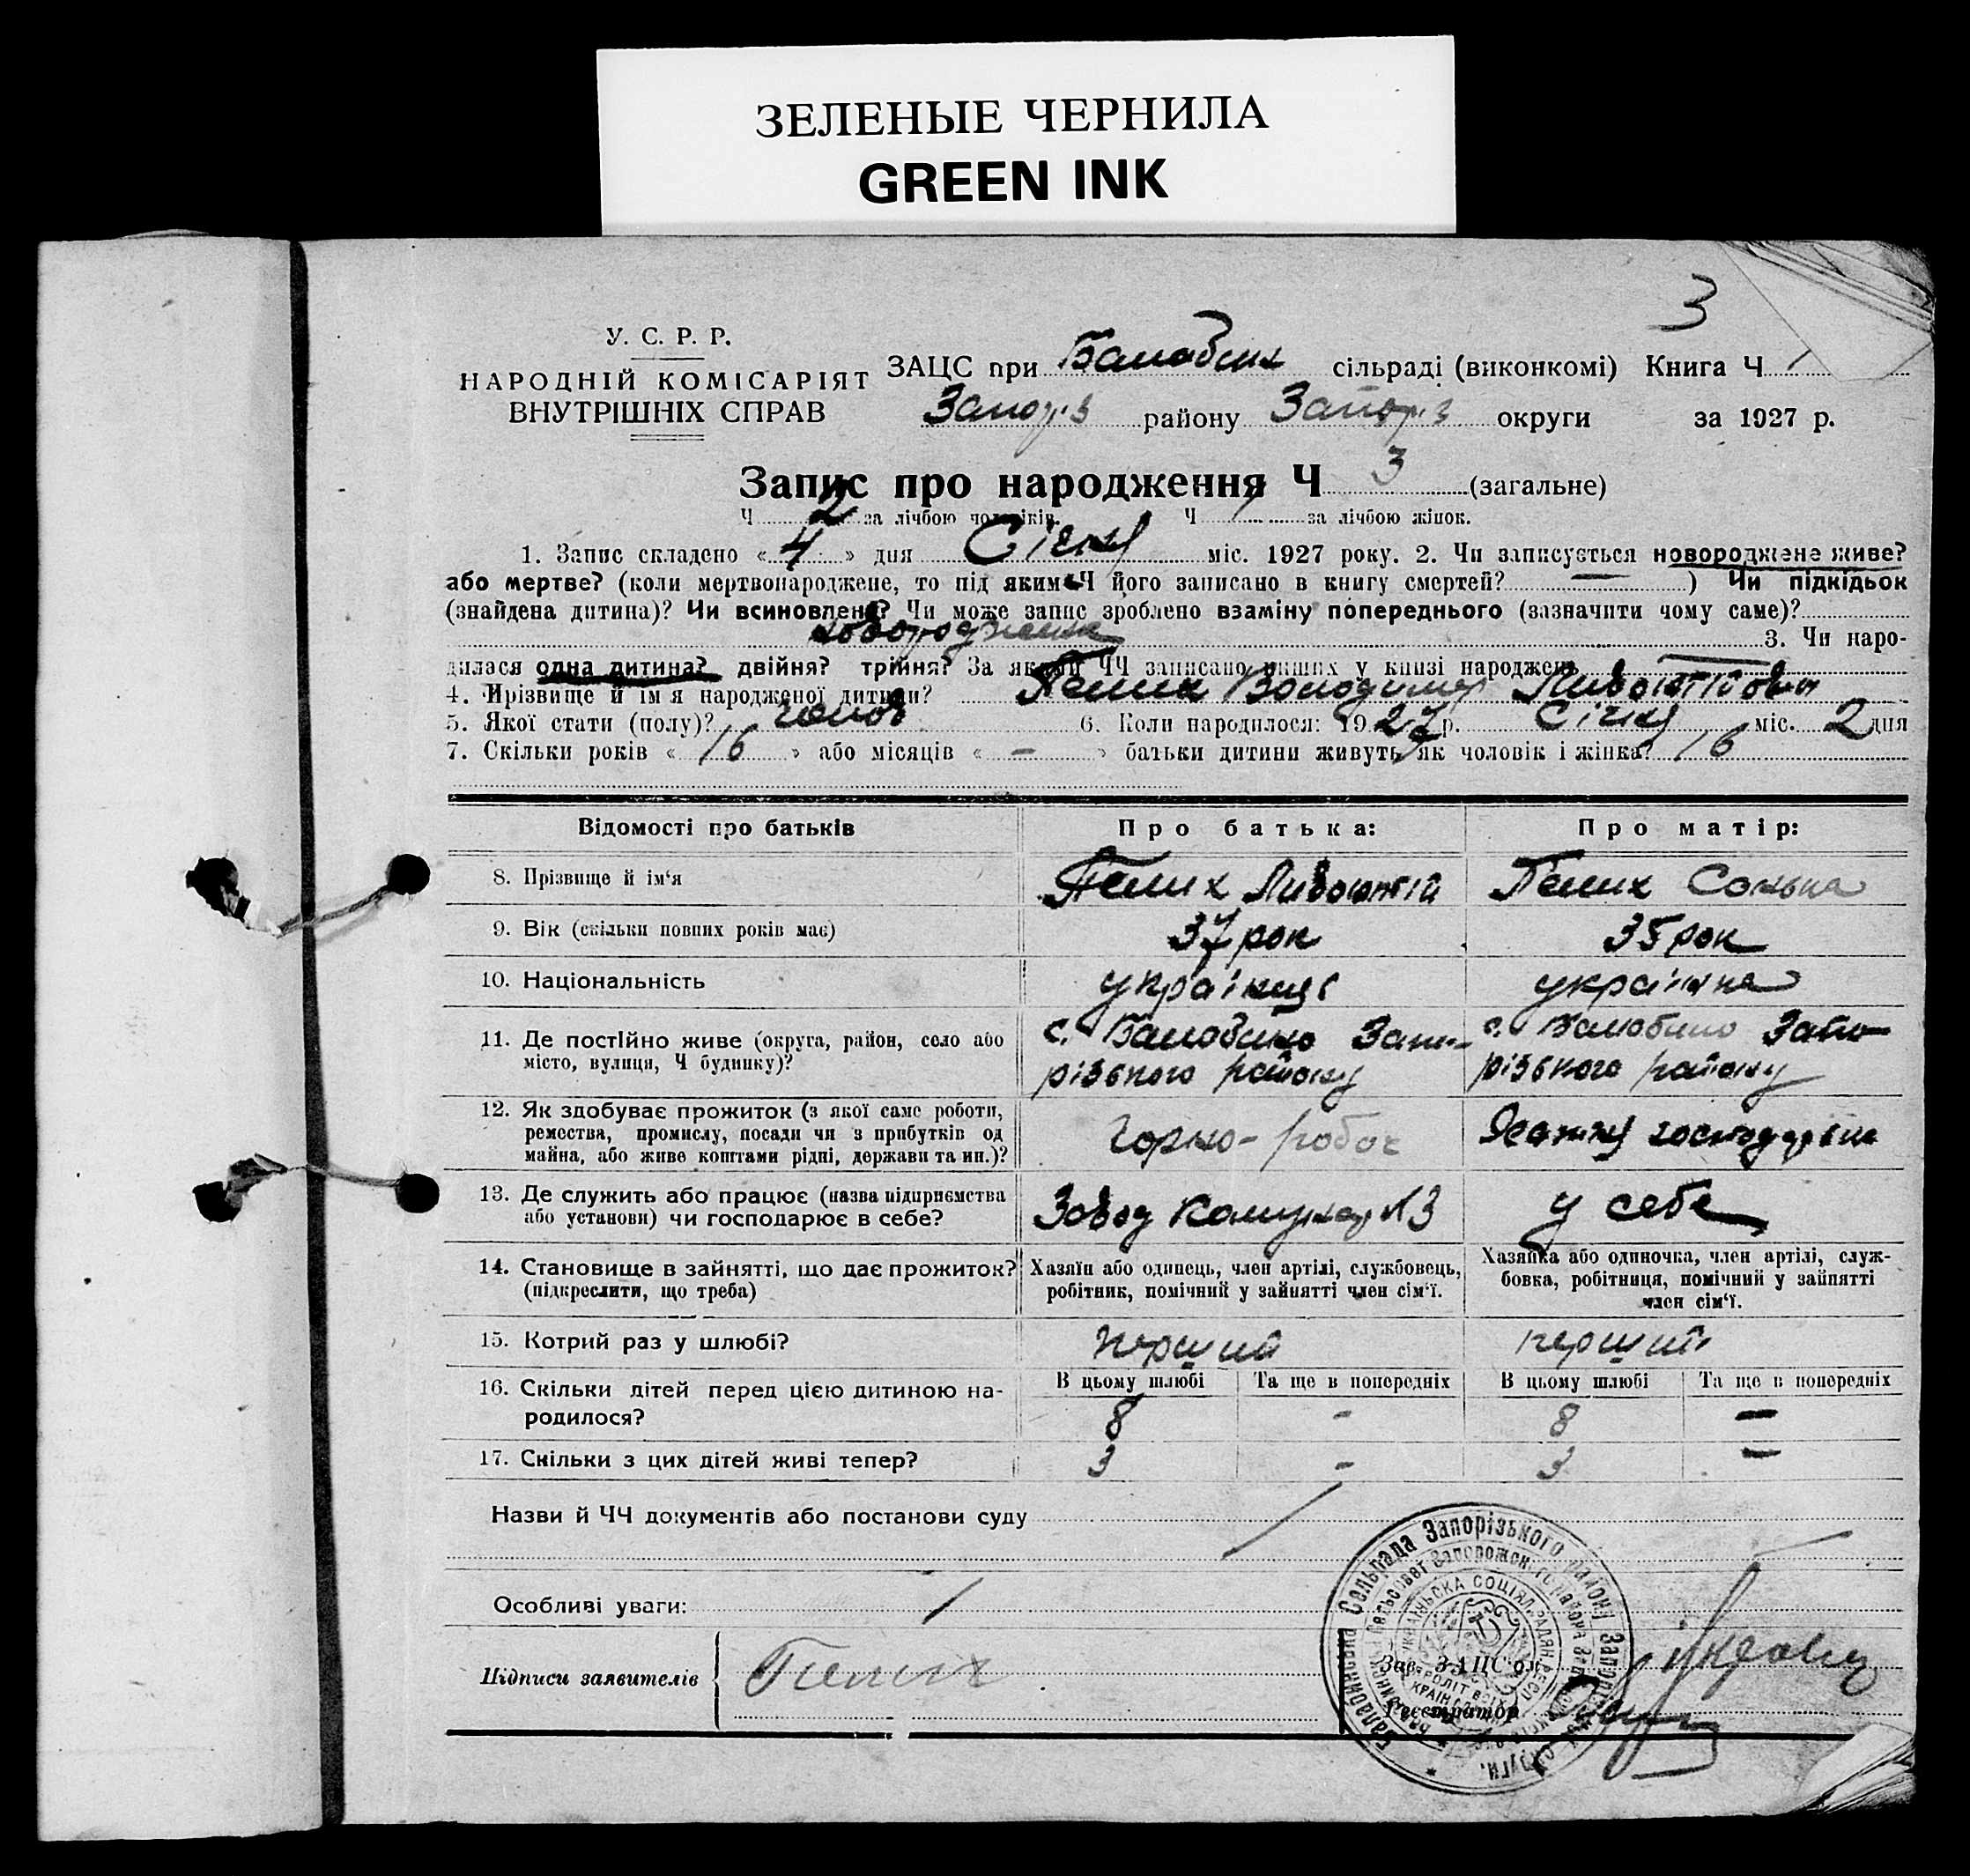 ЗЕЛЕНЫЕ ЧЕРНИЛА
GREEN INK
3
У. С. Р. Р.
НАРОДНІЙ КОМІСАРІЯТ
ВНУТРІШНІХ СПРАВ
ЗАЦС при Балабин сільраді (виконкомі) Книга Ч 1
Запоріз району Запоріз округи за 1927 р.
Запис про народження Ч 3 (загальне)
Ч 2 за лічбою чоловіків. Ч за лічбою жінок.
1. Запис складено « 4 » дня Січня міс. 1927 року. 2. Чи записується новороджене живе?
або мертве? (коли мертвонароджене, то під яким Ч його записано в книгу смертей? — ) Чи підкідьок
(знайдена дитина)? Чи всиновлена? Чи може запис зроблено взаміну попереднього (зазначити чому саме)?
новороджена 3. Чи наро-
дилася одна дитина? двійня? трійня? За якими ЧЧ записано инших у книзі народжень —
4. Прізвище й ім'я народженої дитини? Пелих Володимир
5. Якої стати (полу)? чолов 6. Коли народилося: 1927 р. Січня міс. 2 дня
7. Скільки років « 16 » або місяців « - » батьки дитини живуть як чоловік і жінка? 16
Відомості про батьків Про батька: Про матір:
8. Прізвище й ім'я Пелих Пелих
9. Вік (скільки повних років має) 37 рок 35 рок
10. Національність українець українка
11. Де постійно живе (округа, район, село або
місто, вулиця, Ч будинку)?
с. Балабино Запо-
різького району
с. Балабино Запо-
різького району
12. Як здобуває прожиток (з якої саме роботи,
ремества, промислу, посади чи з прибутків од
майна, або живе коштами рідні, держави та ин.)?
Горно-робоч
господаркі
13. Де служить або працює (назва підприємства
або установи) чи господарює в себе?
Завод Комунар
у себе
14. Становище в зайнятті, що дає прожиток?
(підкреслити, що треба)
Хазяїн або одинець, член артілі, службовець,
робітник, помічний у зайнятті член сім'ї.
Хазяйка або одиночка, член артілі, служ-
бовка, робітниця, помічний у зайнятті
член сім'ї.
15. Котрий раз у шлюбі? перший перший
16. Скільки дітей перед цією дитиною на-
родилося?
В цьому шлюбі Та ще в попередніх В цьому шлюбі Та ще в попередніх
8 - 8 —
17. Скільки з цих дітей живі тепер? 3 - 3 —
Назви й ЧЧ документів або постанови суду
Особливі уваги:
Підписи заявителів Пелих
Зав. ЗАЦС'ом
Реєстратор
Сельрада Запорізького району